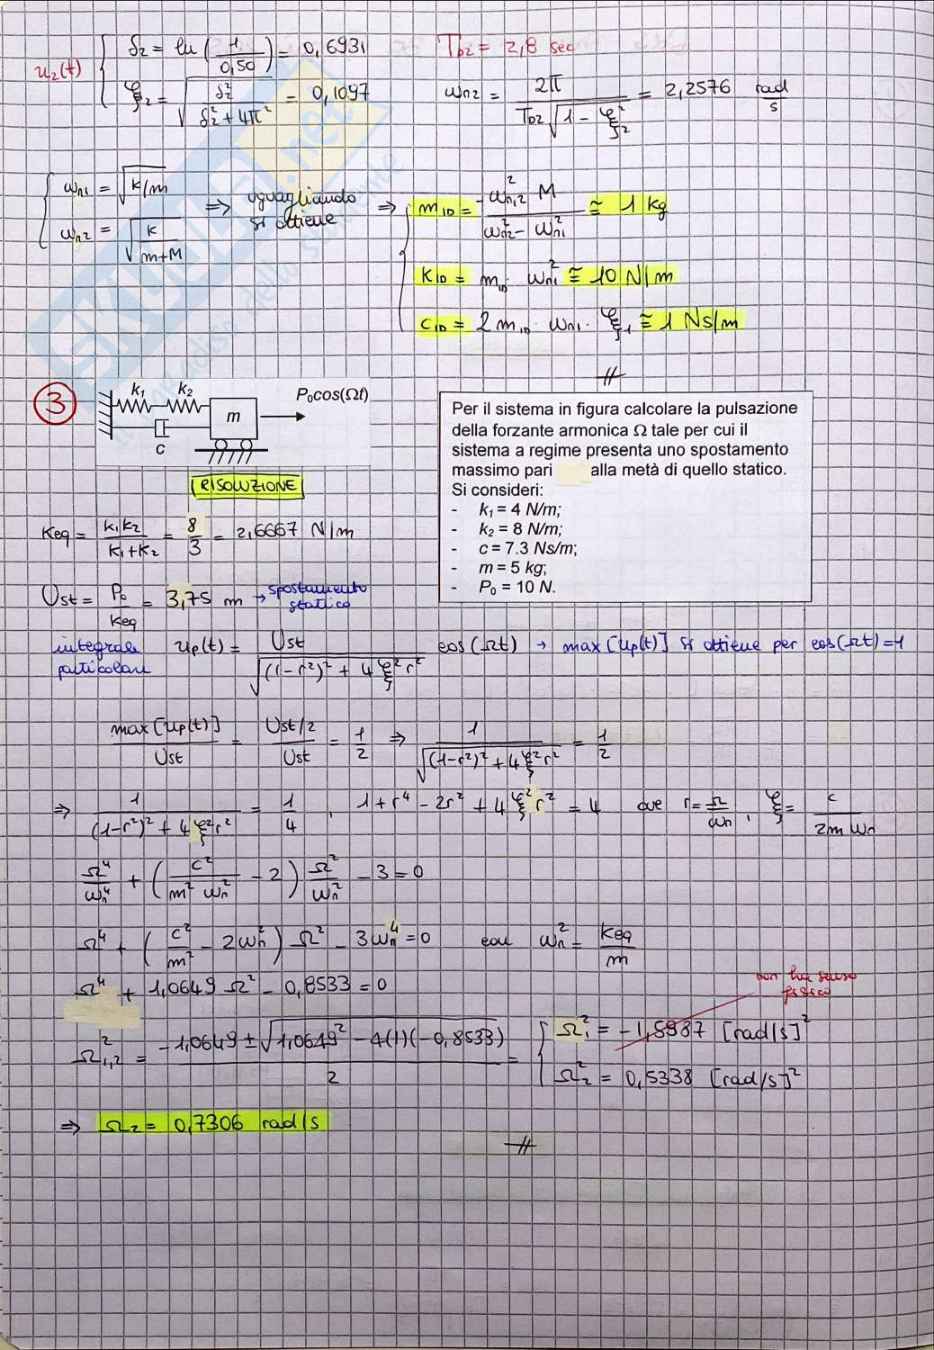 u₂(t) { δ₂ = ln (1/0,50) = 0,6931    T_D2 = 2,8 sec
ξ₂ = √(δ₂²/(δ₂²+4π²)) = 0,1097    ω_n2 = 2π/(T_D2 √(1-ξ₂²)) = 2,2576 rad/s
{ ω_n1 = √(k/m)    ⇒ uguagliando si ottiene ⇒    { m_ID = ω²_n2 M/(ω²_n2 - ω²_n1) ≅ 1 kg
ω_n2 = √(k/(m+M))
k_ID = m_ID · ω²_n1 ≅ 10 N/m
c_ID = 2 m_ID · ω_n1 · ξ₁ ≅ 1 Ns/m
SKUOLA.net
③
k₁ k₂ P₀cos(Ωt)
m
c
Per il sistema in figura calcolare la pulsazione
della forzante armonica Ω tale per cui il
sistema a regime presenta uno spostamento
massimo pari alla metà di quello statico.
Si consideri:
- k₁ = 4 N/m;
- k₂ = 8 N/m;
- c = 7.3 Ns/m;
- m = 5 kg;
- P₀ = 10 N.
RISOLUZIONE
Keq = k₁k₂/(k₁+k₂) = 8/3 = 2,6667 N/m
Ust = P₀/Keq = 3,75 m → spostamento statico
integrale particolare u_p(t) = Ust/√((1-r²)² + 4ξ²r²) cos(Ωt) → max[u_p(t)] si ottiene per cos(Ωt)=1
max[u_p(t)]/Ust = (Ust/2)/Ust = 1/2 ⇒ 1/√((1-r²)²+4ξ²r²) = 1/2
⇒ 1/((1-r²)² + 4ξ²r²) = 1/4 , 1+r⁴ - 2r² + 4ξ²r² = 4 ove r = Ω/ω_n , ξ = c/(2m ω_n)
Ω⁴/ω_n⁴ + (c²/(m² ω_n²) - 2) Ω²/ω_n² - 3 = 0
Ω⁴ + (c²/m² - 2ω_n²) Ω² - 3ω_n⁴ = 0 con ω_n² = keq/m
Ω⁴ + 1,0649 Ω² - 0,8533 = 0
non ha senso fisico
Ω²₁,₂ = (-1,0649 ± √(1,0649² - 4(1)(-0,8533)))/2 = { Ω₁² = -1,5987 [rad/s]²
Ω₂² = 0,5338 [rad/s]²
⇒ Ω₂ = 0,7306 rad/s